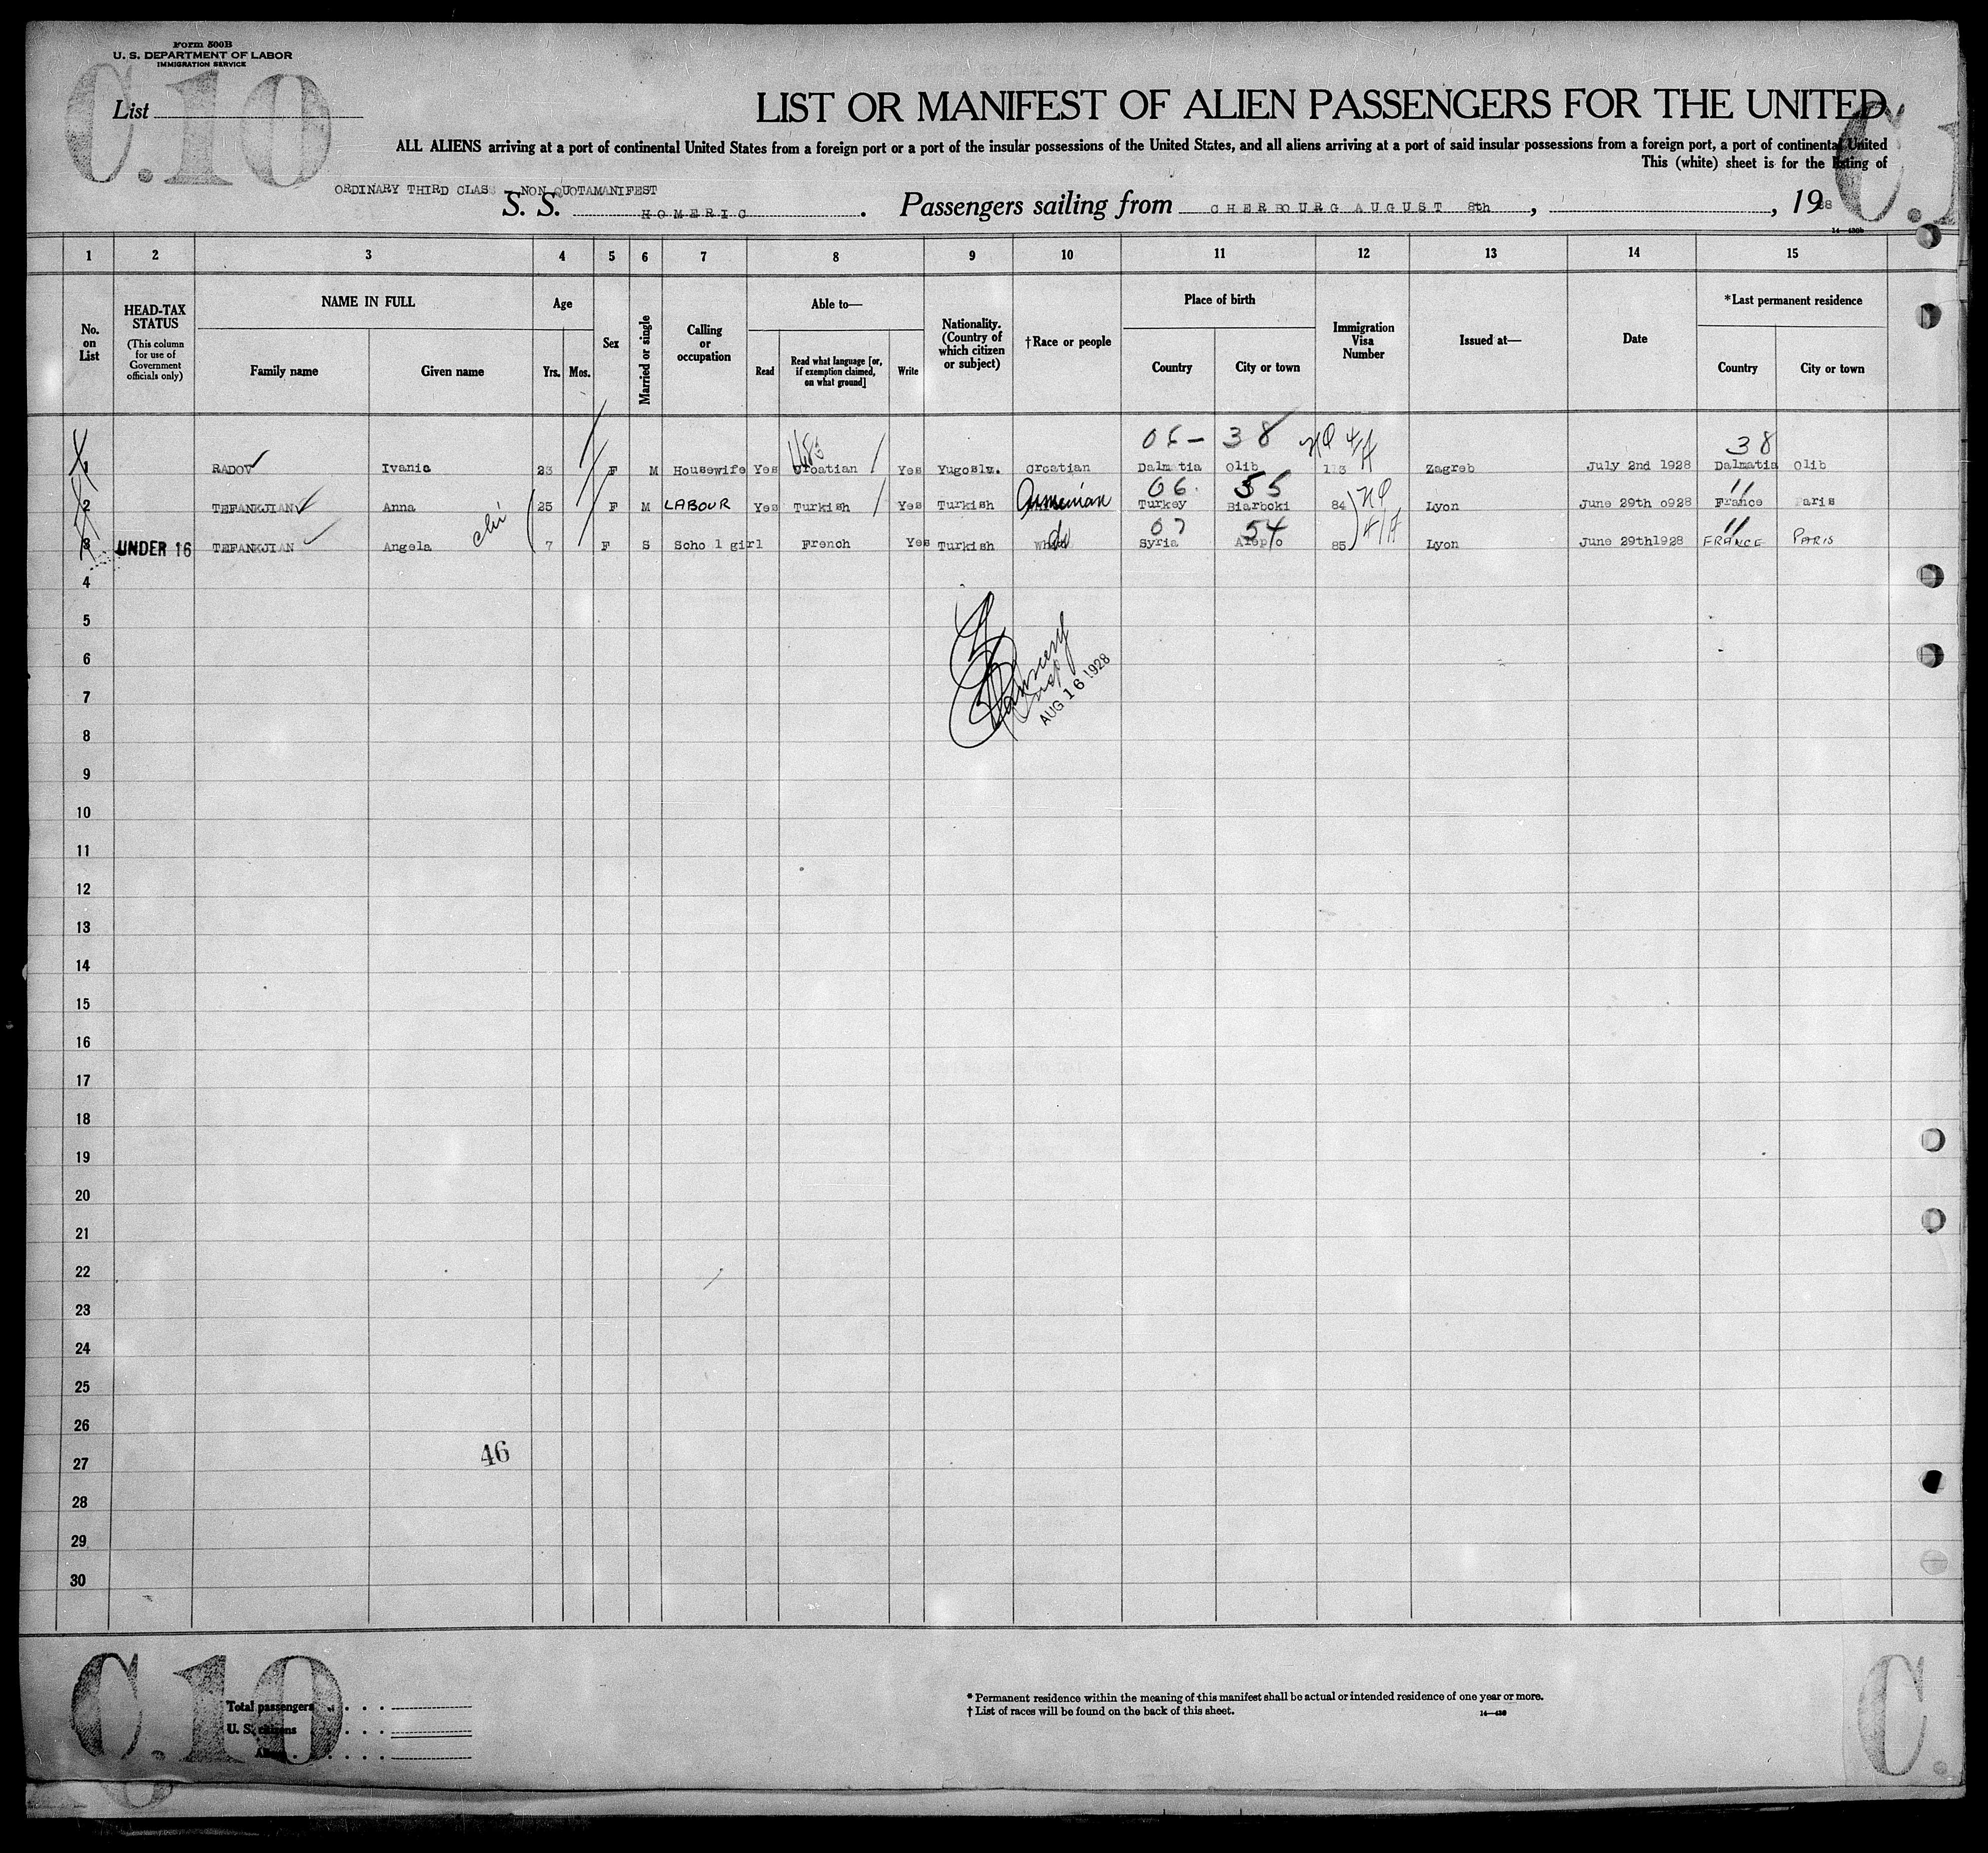 Form 500B
U. S. DEPARTMENT OF LABOR
IMMIGRATION SERVICE
C.10
List
LIST OR MANIFEST OF ALIEN PASSENGERS FOR THE UNITED
ALL ALIENS arriving at a port of continental United States from a foreign port or a port of the insular possessions of the United States, and all aliens arriving at a port of said insular possessions from a foreign port, a port of continental United
This (white) sheet is for the listing of
ORDINARY THIRD CLASS NON QUOTAMANIFEST
S. S. HOMERIC. Passengers sailing from CHERBOURG AUGUST 8th, , 1928
14—430b
1 2 3 4 5 6 7 8 9 10 11 12 13 14 15
No. on List
HEAD-TAX STATUS (This column for use of Government officials only)
NAME IN FULL
Family name Given name
Age
Yrs. Mos.
Sex
Married or single
Calling or occupation
Able to—
Read Read what language [or, if exemption claimed, on what ground] Write
Nationality. (Country of which citizen or subject)
†Race or people
Place of birth
Country City or town
Immigration Visa Number
Issued at—
Date
*Last permanent residence
Country City or town
06 - 38 38
1 RADOV Ivanic 23 F M Housewife Yes Croatian Yes Yugoslv. Croatian Dalmatia Olib 113 Zagreb July 2nd 1928 Dalmatia Olib
06 55 11
2 TEFANKJIAN Anna 25 F M LABOUR Yes Turkish Yes Turkish Armenian Turkey Biarboki 84 Lyon June 29th o928 France Paris
07 54 11
3 UNDER 16 TEFANKJIAN Angela 7 F S Scho l girl French Yes Turkish do Syria Aleppo 85 Lyon June 29th1928 FRANCE PARIS
4
5
6
7
AUG 16 1928
8
9
10
11
12
13
14
15
16
17
18
19
20
21
22
23
24
25
26
46
27
28
29
30
C.10
Total passengers
U. S. citizens
Aliens
* Permanent residence within the meaning of this manifest shall be actual or intended residence of one year or more.
† List of races will be found on the back of this sheet.
14—430
C.